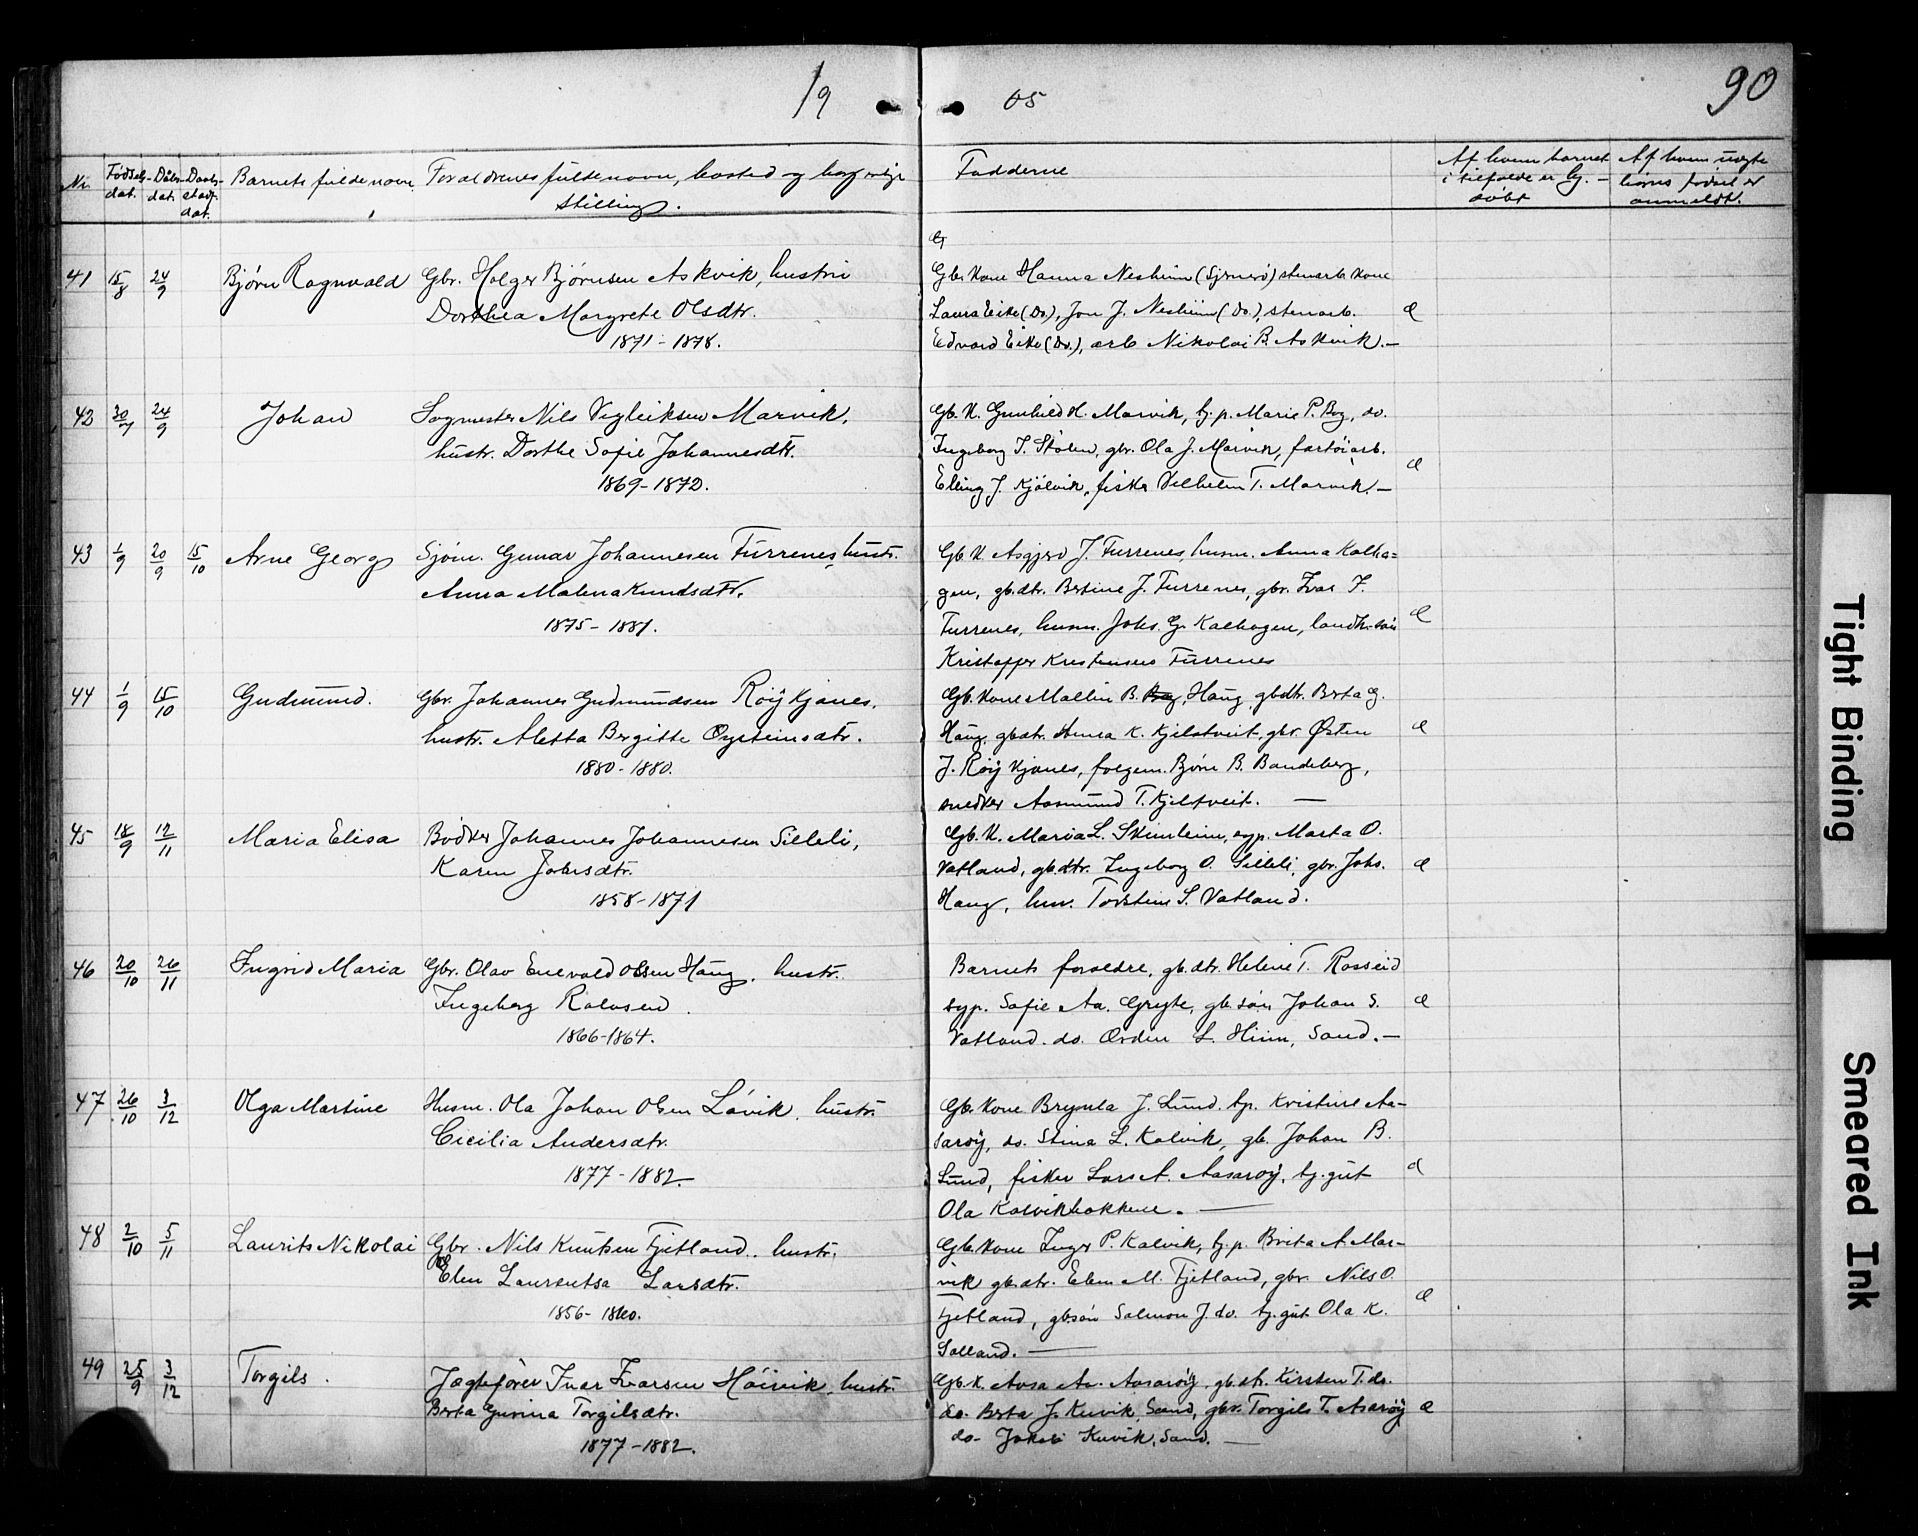 19 05 90
Nr. Fødsels-dat. Dåbs-dat. Daabs-stadf. dat. Barnets fulde navn Forældrenes fulde navn, bosted og borgerlige stilling. Fadderne Af hvem barnet i tilfælde er hj.-døbt Af hvem uægte børns fødsel er anmeldt.
41 15/8 24/9 Bjørn Ragnvald
Gbr. Holger Bjørnsen Askvik, hustru
Dorthea Margrete Olsdtr.
1871-1878.
Gbr kone Hanna Nesheim (Sjernerø) stenarb. kone
Laura Eike (Do), Jon J. Nesheim (Do.), stenarb.
Edvard Eike (Do.), arb Nikolai B. Askvik.-
42 30/7 24/9 Johan
Sogmester Nils Vigleiksen Marvik,
hustr. Dorthe Sofie Johannesdtr.
1869-1872.
Gb. K. Gunhild H. Marvik, tj. p. Marie P. Bog, do.
Ingeborg I. Stølen, gbr. Ola J. Marvik, fartøiarb.
Elling J. Kjølvik, fisker Vilhelm T. Marvik.-
43 1/9 20/9 15/10 Arne Georg
Sjøm. Gunnar Johannesen Furrenes, hustr.
Anna Malena Knudsdtr.
1875-1881.
Gb K Asgjerd J. Furrenes, husm. Anna Kalha-
gen, gb.dtr. Bertine J. Furrenes, gbr. Ivar I.
Furrenes, husm. Johs. G. Kalhagen, landh. søn
Kristoffer Kristensen Furrenes
44 1/9 15/10 Gudmund.
Gbr. Johannes Gudmundsen Røykjanes,
hustr. Aletta Bergitte Øysteinsdtr.
1880-1880.
Gb. kone Mallin B. Haug, gbdtr. Berta G.
Haug, gbdtr. Anna K. Kjølstveit, gbr. Østen
J. Røykjanes, folgem. Bjørn B. Bandeberg,
snedker Aasmund T. Kjølstveit. -
45 18/9 12/11 Maria Elisa
Bødker Johannes Johannesen Silleli,
Karen Johsdtr.
1858-1871
Gb. K. Maria L. Skimleim, syp. Marta O.
Vatland, gb.dtr. Ingeborg O. Silleli, gbr. Johs.
Haug, hm. Torstein S. Vatland.
46 20/10 26/11 Ingrid Maria
Gbr. Olav Enevald Olsen Haug, hustr.
Ingeborg Rolvsen.
1866-1864.
Barnets forældre, gb.dtr. Helene T. Rosseid
syp. Sofie Aa. Gryte, gb søn Johan S.
Vatland. do. Orden L. Hiim, Sand.-
47 26/10 3/12 Olga Martine
Husm. Ola Johan Olsen Løvik, hustr.
Cicilia Andersdtr.
1877-1882.
Gb. kone Brynla J. Lund, tp. Kristine Aa-
sarøy, do. Stina L. Kalvik, gb. Johan B.
Lund, fisker Lars A. Aasarøy, tj. gut
Ola Kalvikbakkene. -
48 2/10 5/11 Laurits Nikolai
Gbr. Nils Knutsen Fjetland, hustr.
Elen Laurentsa Larsdtr.
1856-1860.
Gb. kone Inger P. Kalvik, tj. p. Brita A. Mar-
vik gb.dtr. Elen M. Fjetland, gbr. Nils O.
Fjetland, gbsøn Salmon J. do. tj. gut Ola K.
Solland. -
49 25/9 3/12 Torgils.
Jagtefører Ivar Ivarsen Høivik, hustr.
Berta Gurina Torgilsdtr.
1877-1882.
Gb. K. Aasa Aa. Aasarøy, gb. dtr. Kirsten T. do.
do. Berta J. Kuvik, Sand, gbr. Torgils T. Aasarøy
do- Jakob Kuvik, Sand. -
Tight Binding
Smeared Ink